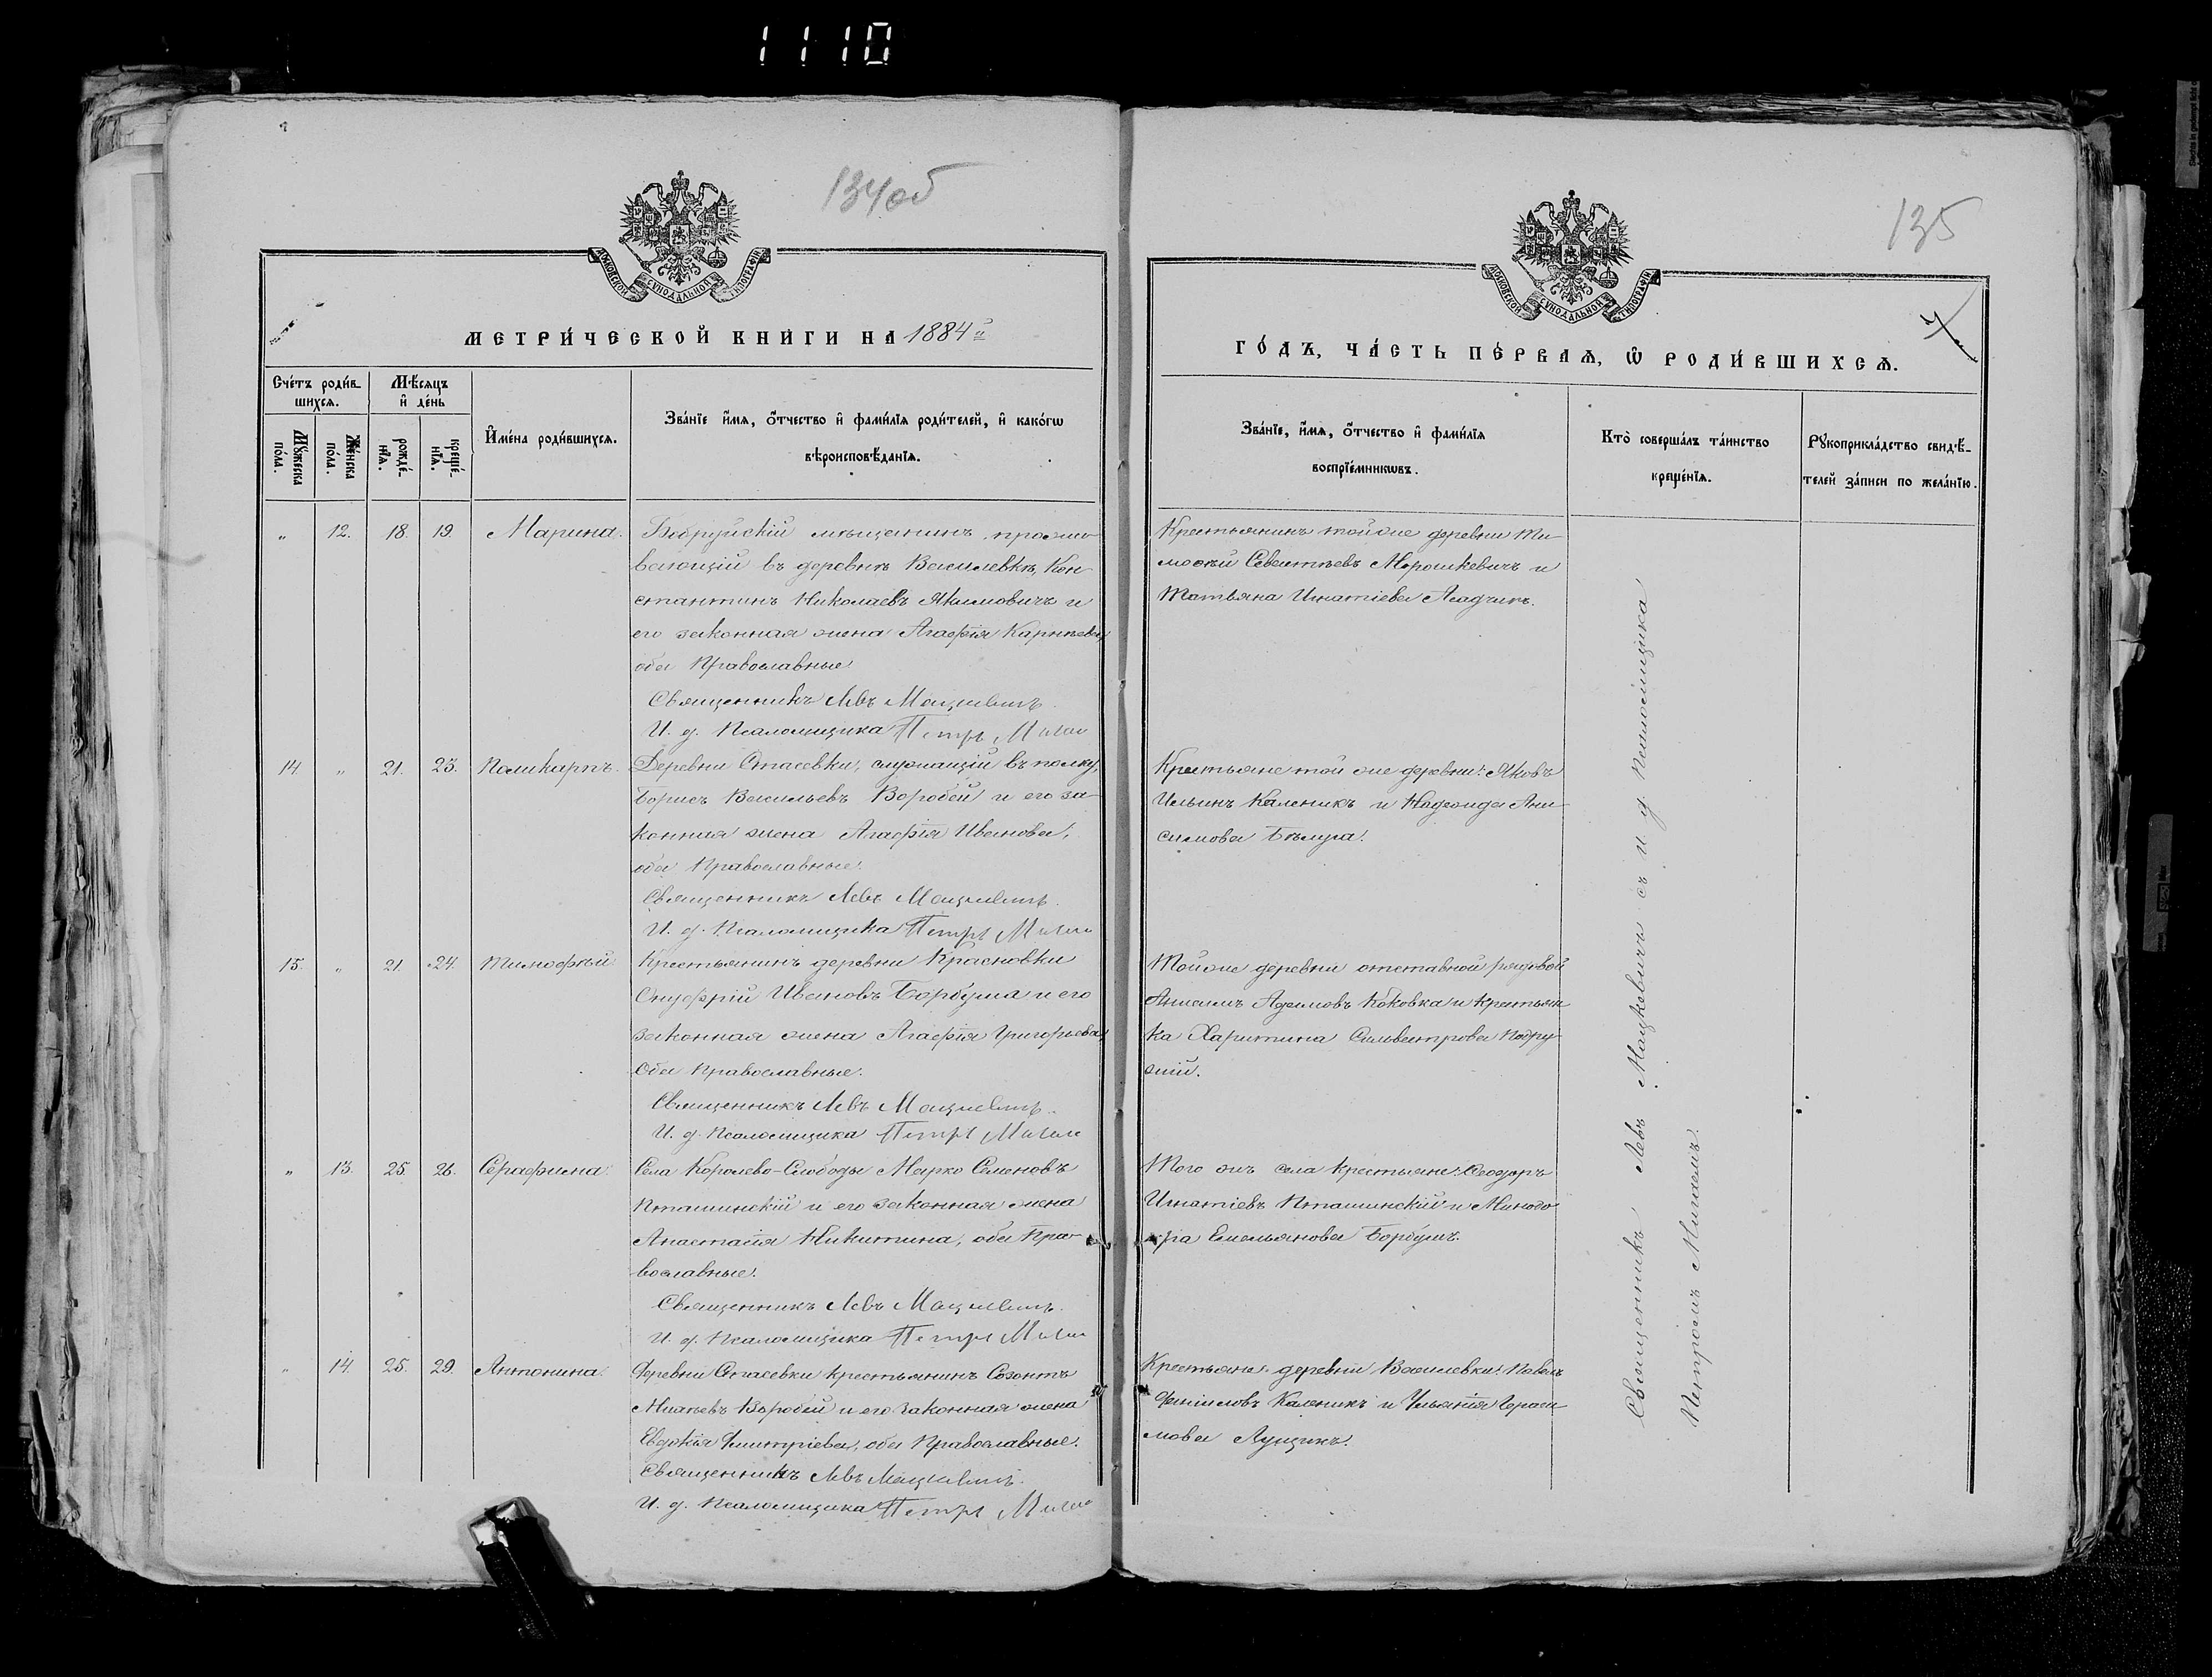 1110
134об
135
МОСКОВСКОЙ СѴНОДАЛЬНОЙ ТИПОГРАФІИ
МОСКОВСКОЙ СѴНОДАЛЬНОЙ ТИПОГРАФІИ
МЕТРИ́ЧЕСКОЙ КНИ́ГИ НА 1884й
ГО́ДЪ, ЧА́СТЬ ПЕ́РВАѦ, Ѡ҆ РОДИ́ВШИХСѦ.
4
Сче́тъ роди́вшихсѧ.
Мꙋ́жеска по́ла.
Же́нска по́ла.
Мѣ́сѧцъ и҆ де́нь
рожде́нїѧ.
креще́нїѧ.
И҆мена̀ роди́вшихсѧ.
Зва́нїе и҆́мѧ, ѻ҆́тчество и҆ фами́лїѧ роди́телей, и҆ како́гѡ
вѣроисповѣ́данїѧ.
Зва́нїе, и҆́мѧ, ѻ҆́тчество и҆ фами́лїѧ
воспрїе́мникѡвъ.
Кто̀ соверша́лъ та́инство
креще́нїѧ.
Рꙋкоприкла́дство свидѣ́-
телей за́писи по жела́нїю.
„ 12. 18. 19. Марина.
Бобруйскій мѣщанинъ, прожи-
вающій въ деревнѣ Василевкѣ, Кон-
стантинъ Николаевъ Якимовичъ и
его законная жена Агафія Карпнева,
оба Православные.
Священникъ Левъ Мацкевичъ.
И. д. Псаломщика Петръ
Крестьянинъ той же деревни Ти-
мофей Севастьевъ Морошкевичъ и
Татьяна Игнатіева Асадчикъ.
14 „ 21. 23. Поликарпъ.
Деревни Стасевки, служащій въ полку,
Борисъ Васильевъ Воробей и его за-
конная жена Агафія Иванова,
оба Православные.
Священникъ Левъ Мацкевичъ.
И. д. Псаломщика Петръ
Крестьяне той же деревни: Яковъ
Ильинъ Каленикъ и Надежда Ани-
симова Бѣлуга.
15. „ 21. 24. Тимофѣй
Крестьянинъ деревни Красновки
Онуфрій Ивановъ Борбула и его
законная жена Агафія Григорьева,
Оба Православные.
Священникъ Левъ Мацкевичъ.
И. д. Псаломщика Петръ
Той же деревни отставной рядовой
Адамовъ Коковка и крестьян
ка Харитина Сильвестрова Подру-
жій.
„ 13. 25 26. Серафима.
Села Королево-Слободы Марко Семеновъ
Пташинскій и его законная жена
Анастасія Никитина, оба Пра-
вославные.
Священникъ Левъ Мацкевичъ.
И. д. Псаломщика Петръ
Того жъ села крестьяне: Ѳеодоръ
Игнатіевъ Пташинскій и Минодо
ра Емельянова Борбулъ.
„ 14. 25. 29. Антонина.
Деревни Стасевки крестьянинъ Созонтъ
Воробей и его законная жена
Евдокія Димитріева, оба Православные.
Священникъ Левъ Мацкевичъ.
И. д. Псаломщика Петръ
Крестьяне деревни Василевки: Павелъ
Каленикъ и Ульянія Гераси
мова Лущикъ.
Священникъ Левъ Мацкевичъ съ и. д. Псаломщика
Петромъ